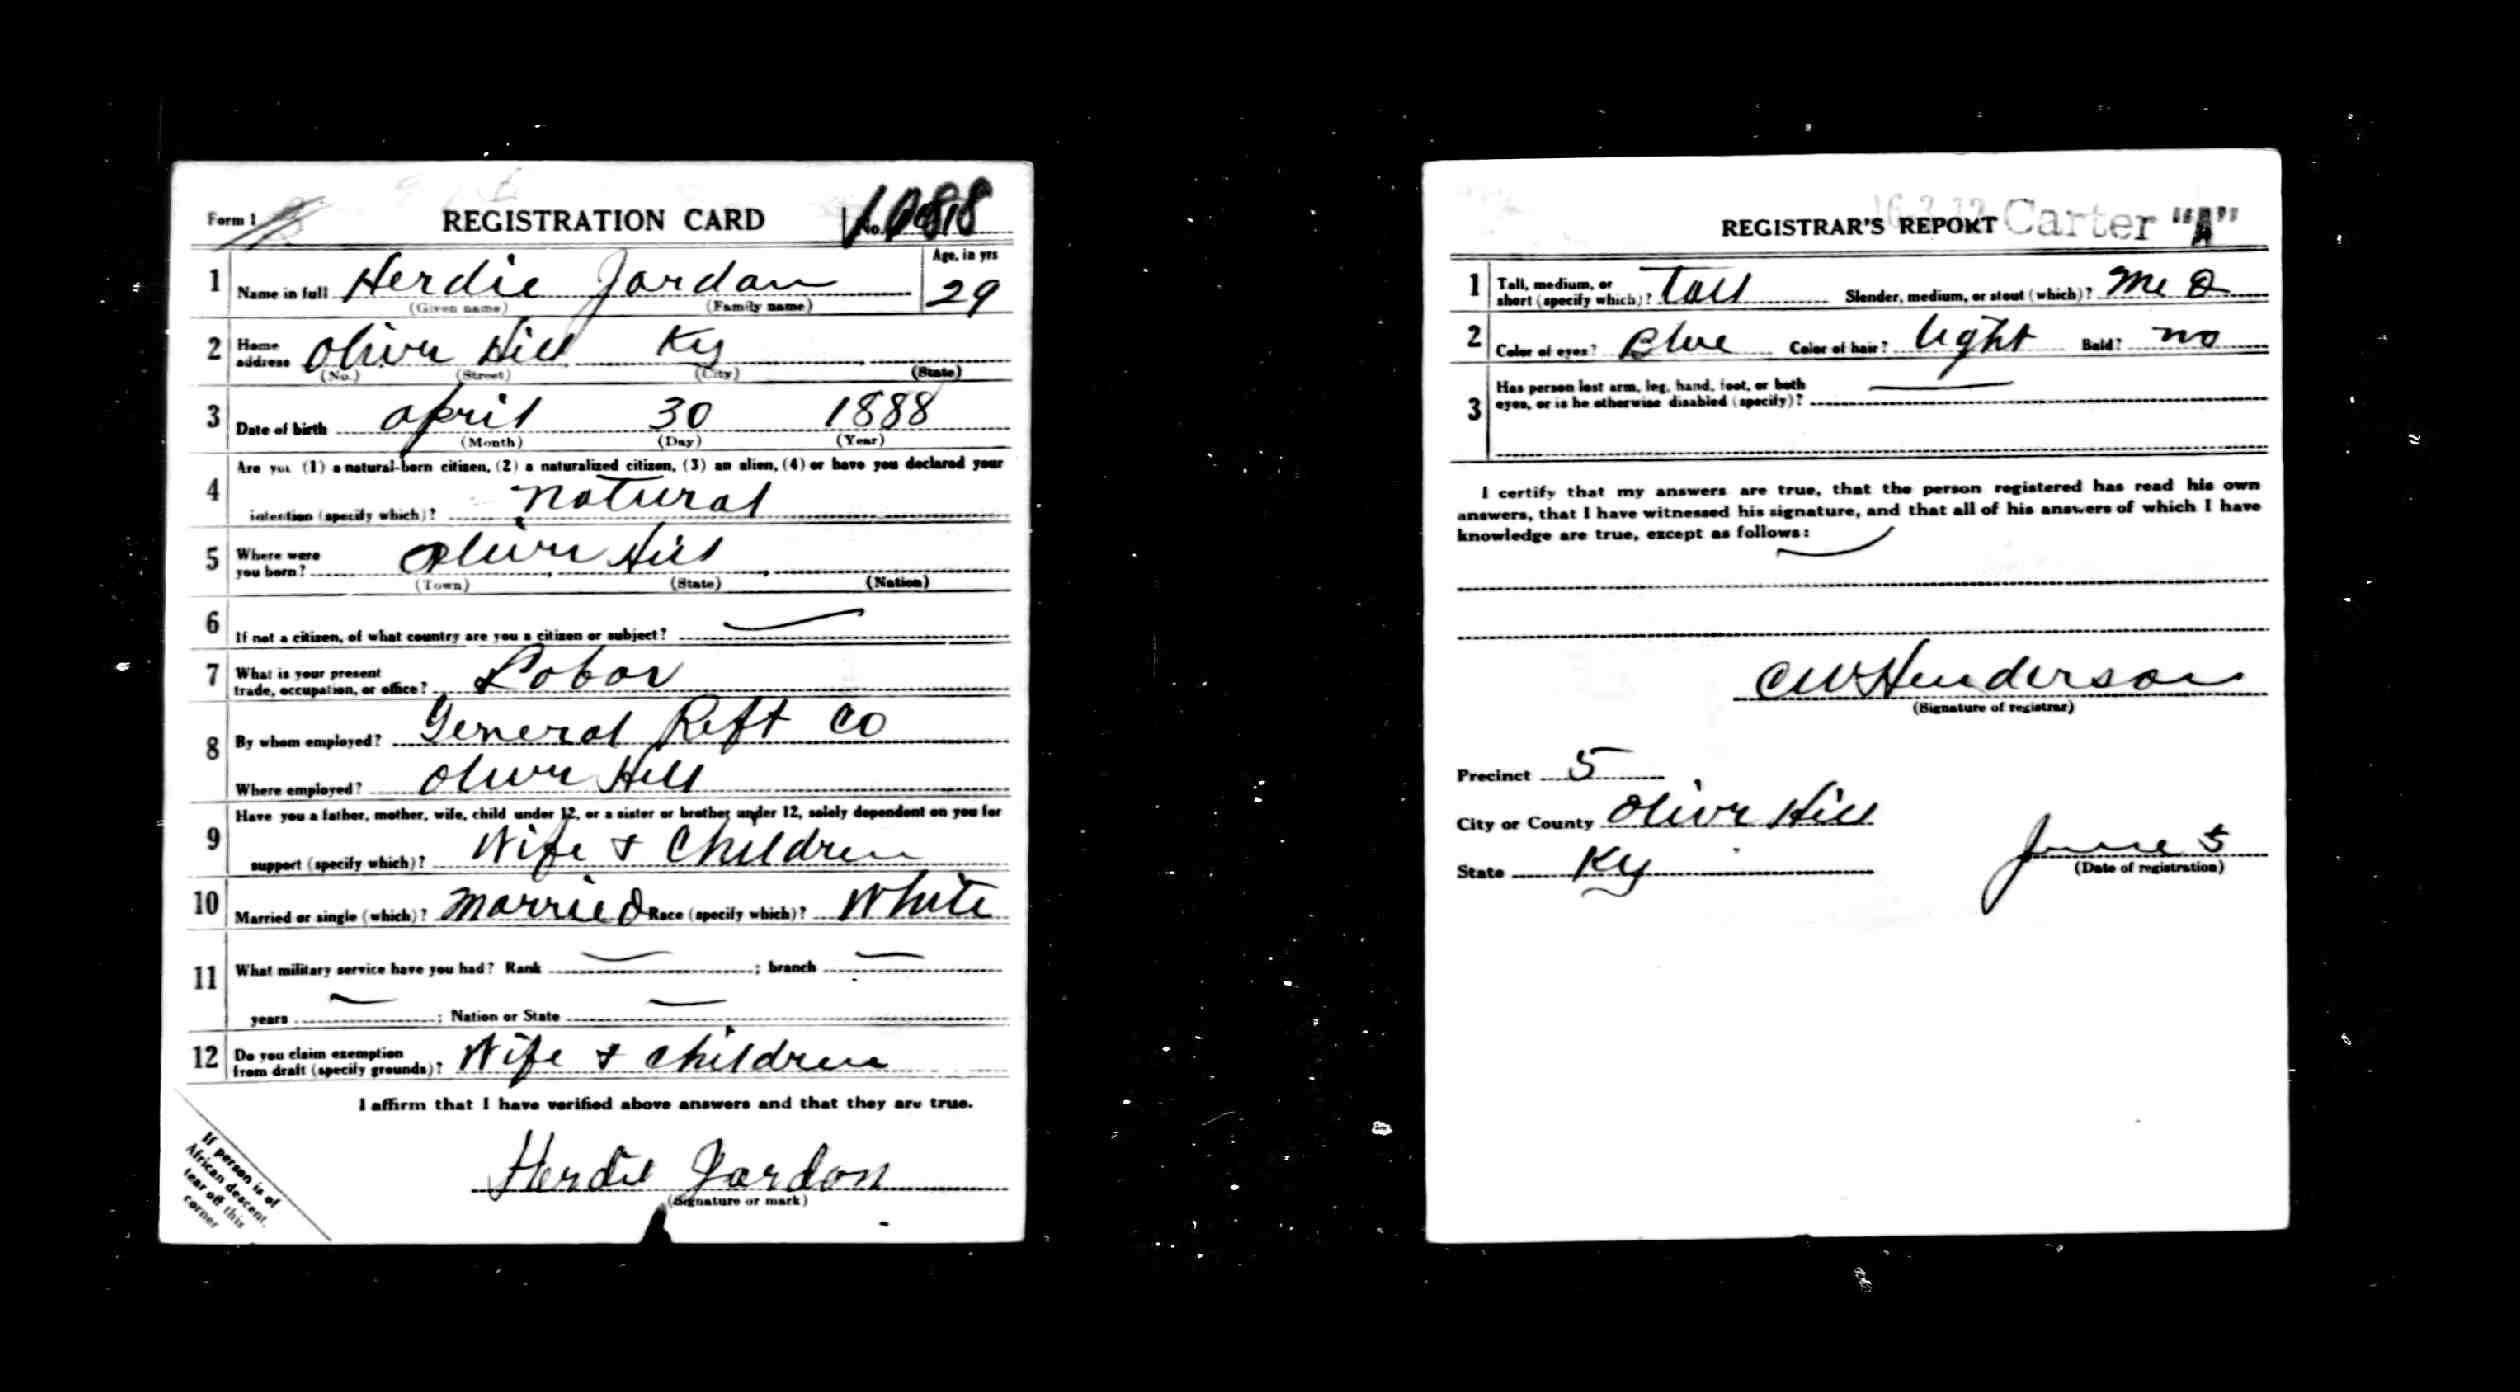 Form 1 REGISTRATION CARD No.
1 Name in full Herdie Jordan Age, in yrs 29
(Given name) (Family name)
2 Home address Olivr Hill Ky
(No.) (Street) (City) (State)
3 Date of birth april 30 1888
(Month) (Day) (Year)
Are you (1) a natural-born citizen, (2) a naturalized citizen, (3) an alien, (4) or have you declared your
4 intention (specify which)? natural
5 Where were you born? Olivr Hill
(Town) (State) (Nation)
6 If not a citizen, of what country are you a citizen or subject?
7 What is your present trade, occupation, or office? Labor
8 By whom employed? General Reft Co
Where employed? Olivr Hill
Have you a father, mother, wife, child under 12, or a sister or brother under 12, solely dependent on you for
9 support (specify which)? Wife + Children
10 Married or single (which)? Married Race (specify which)? White
11 What military service have you had? Rank ; branch
years ; Nation or State
12 Do you claim exemption from draft (specify grounds)? Wife + children
I affirm that I have verified above answers and that they are true.
Herdie Jordon
(Signature or mark)
If person is of
African descent,
tear off this
corner
REGISTRAR'S REPORT Carter "A"
1 Tall, medium, or short (specify which)? Tall Slender, medium, or stout (which)? Med
2 Color of eyes? Blue Color of hair? light Bald? no
3 Has person lost arm, leg, hand, foot, or both
eyes, or is he otherwise disabled (specify)?
I certify that my answers are true, that the person registered has read his own
answers, that I have witnessed his signature, and that all of his answers of which I have
knowledge are true, except as follows:
CW Henderson
(Signature of registrar)
Precinct 5
City or County Olivr Hill
State Ky June 5
(Date of registration)